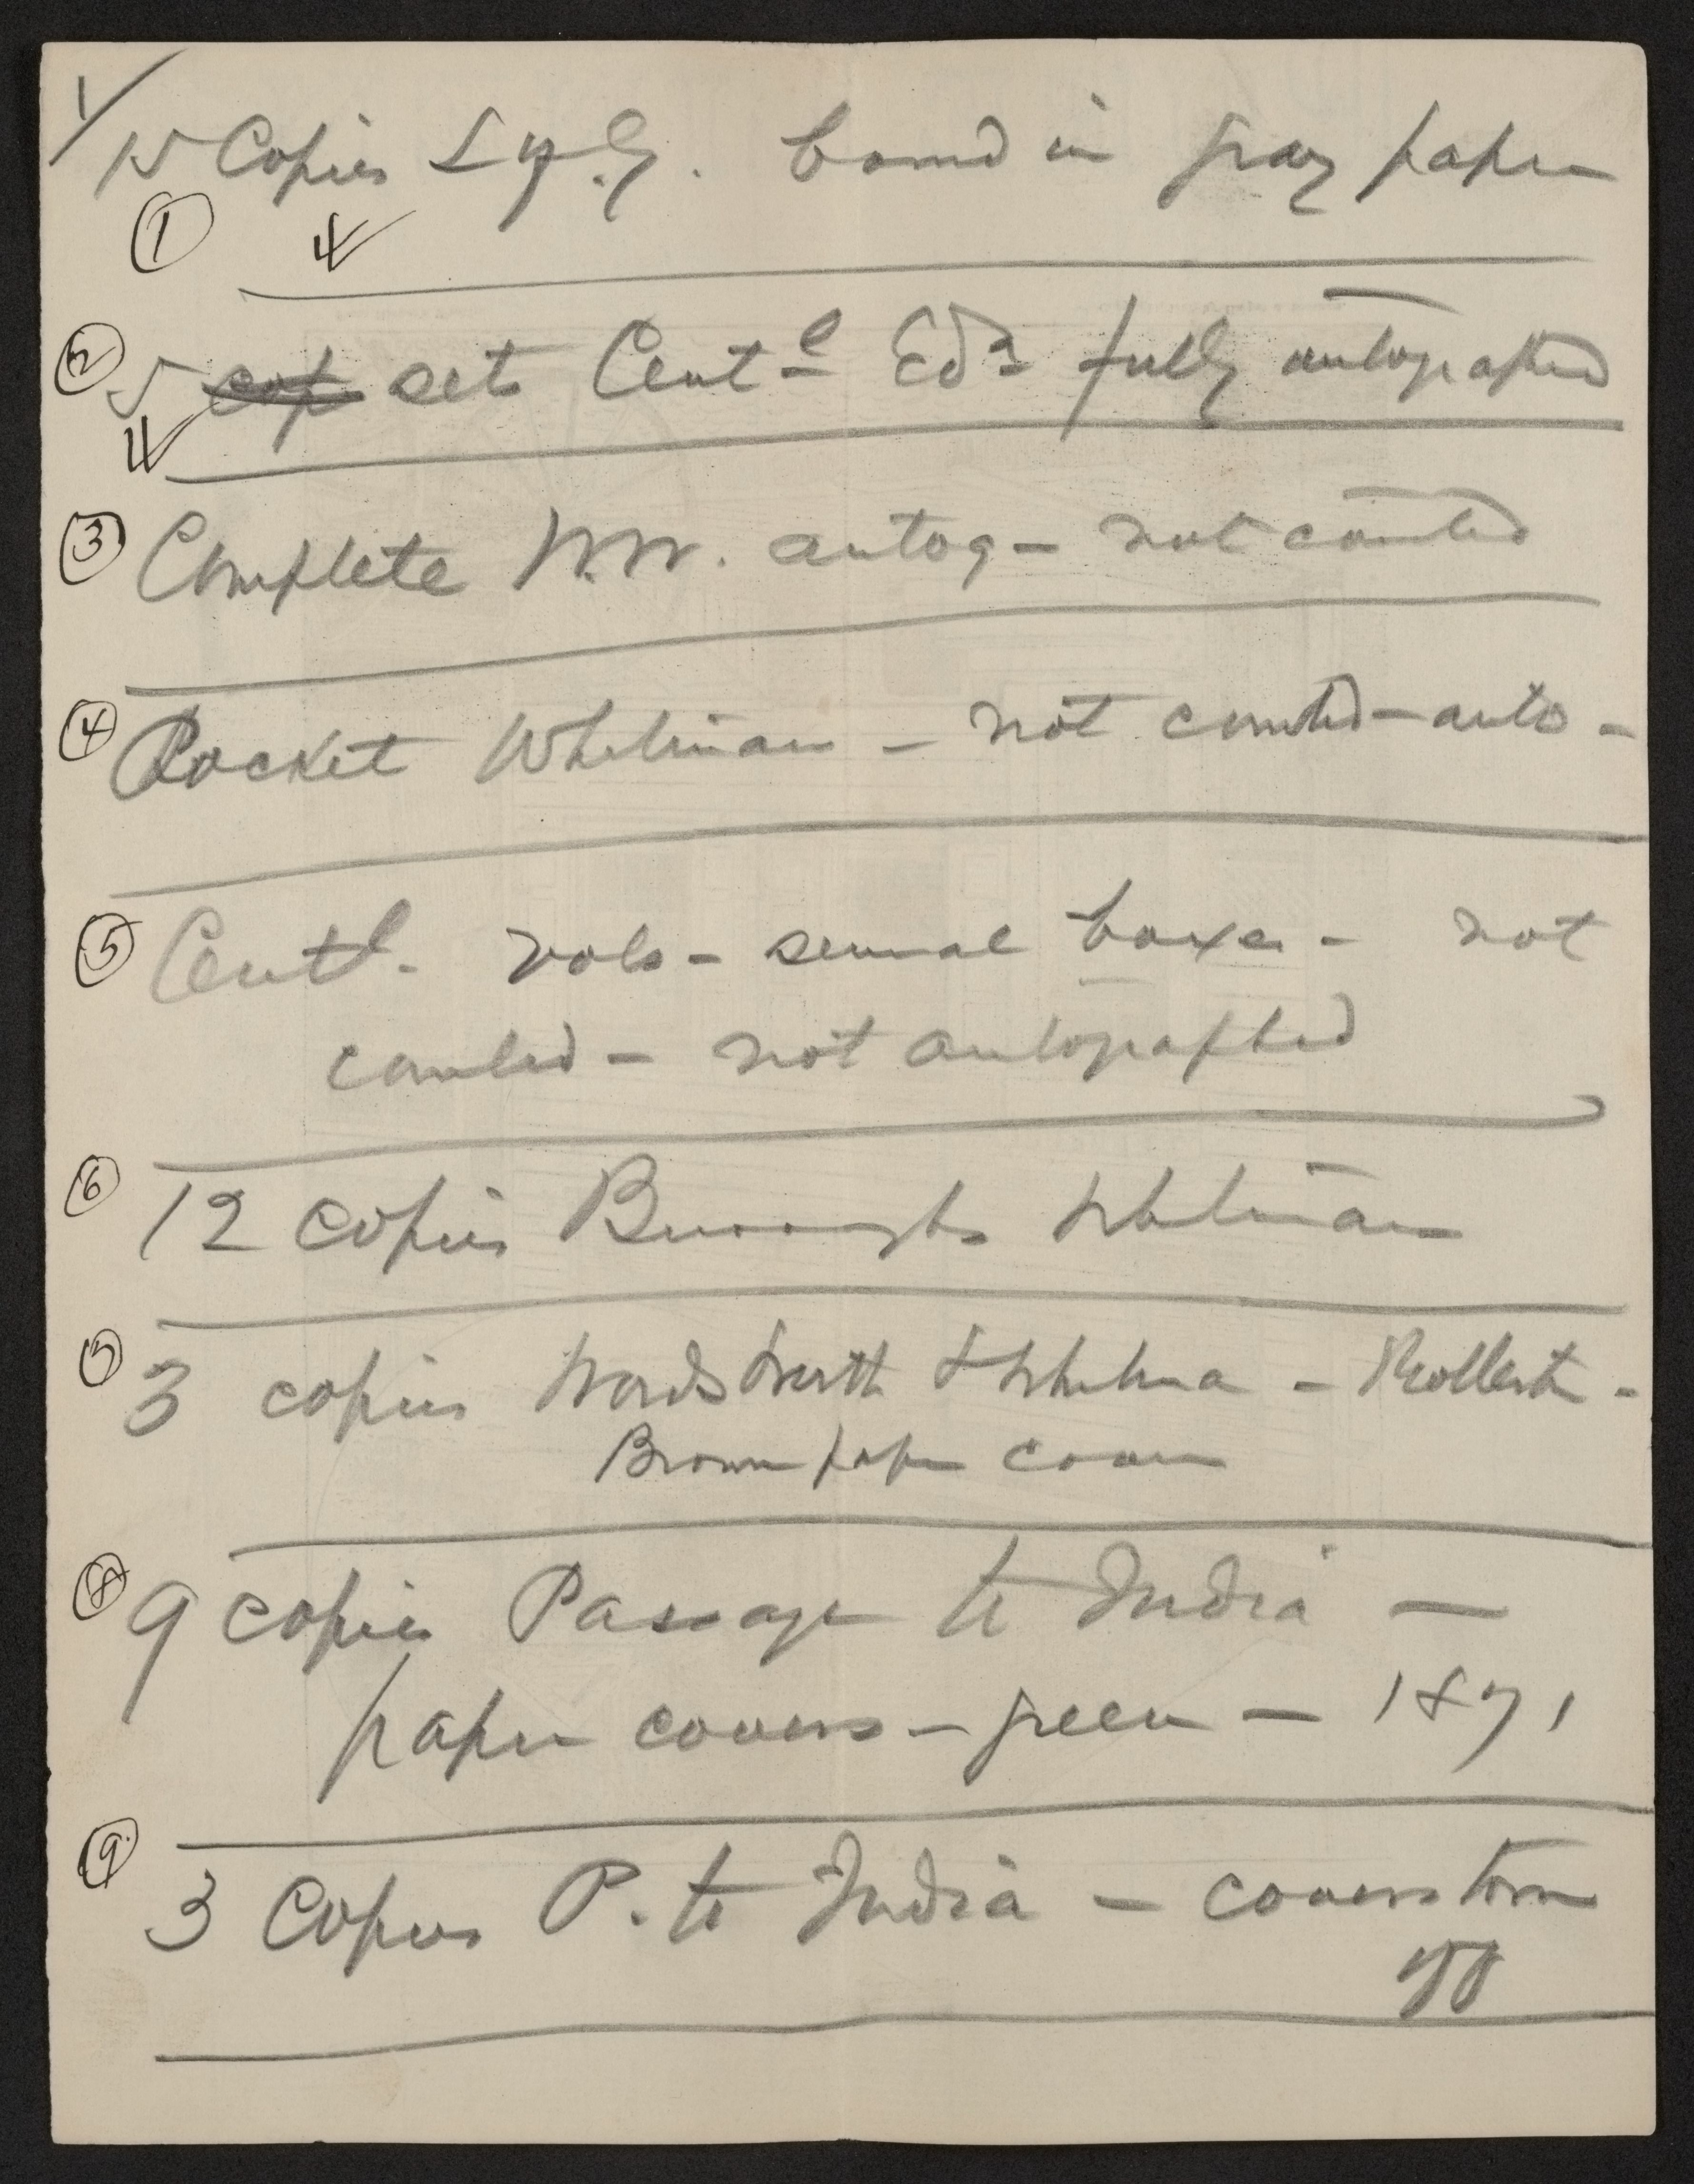 1/
15 Copies L of G. bound in gray paper
①
② 5 sets Centl Edn fully autographed
③ Complete W.W. autog — not counted
④ Pocket Whitman — not counted — auto —
⑤ Centl. vols — several boxes — not
counted — not autographed
⑥ 12 copies Burroughs Whitman
⑦ 3 copies Wordsworth & Whitman —
Brown paper cover
⑧ 9 copies Passage to India —
paper covers — green — 1871
⑨ 3 Copies P. to India — covers torn
off